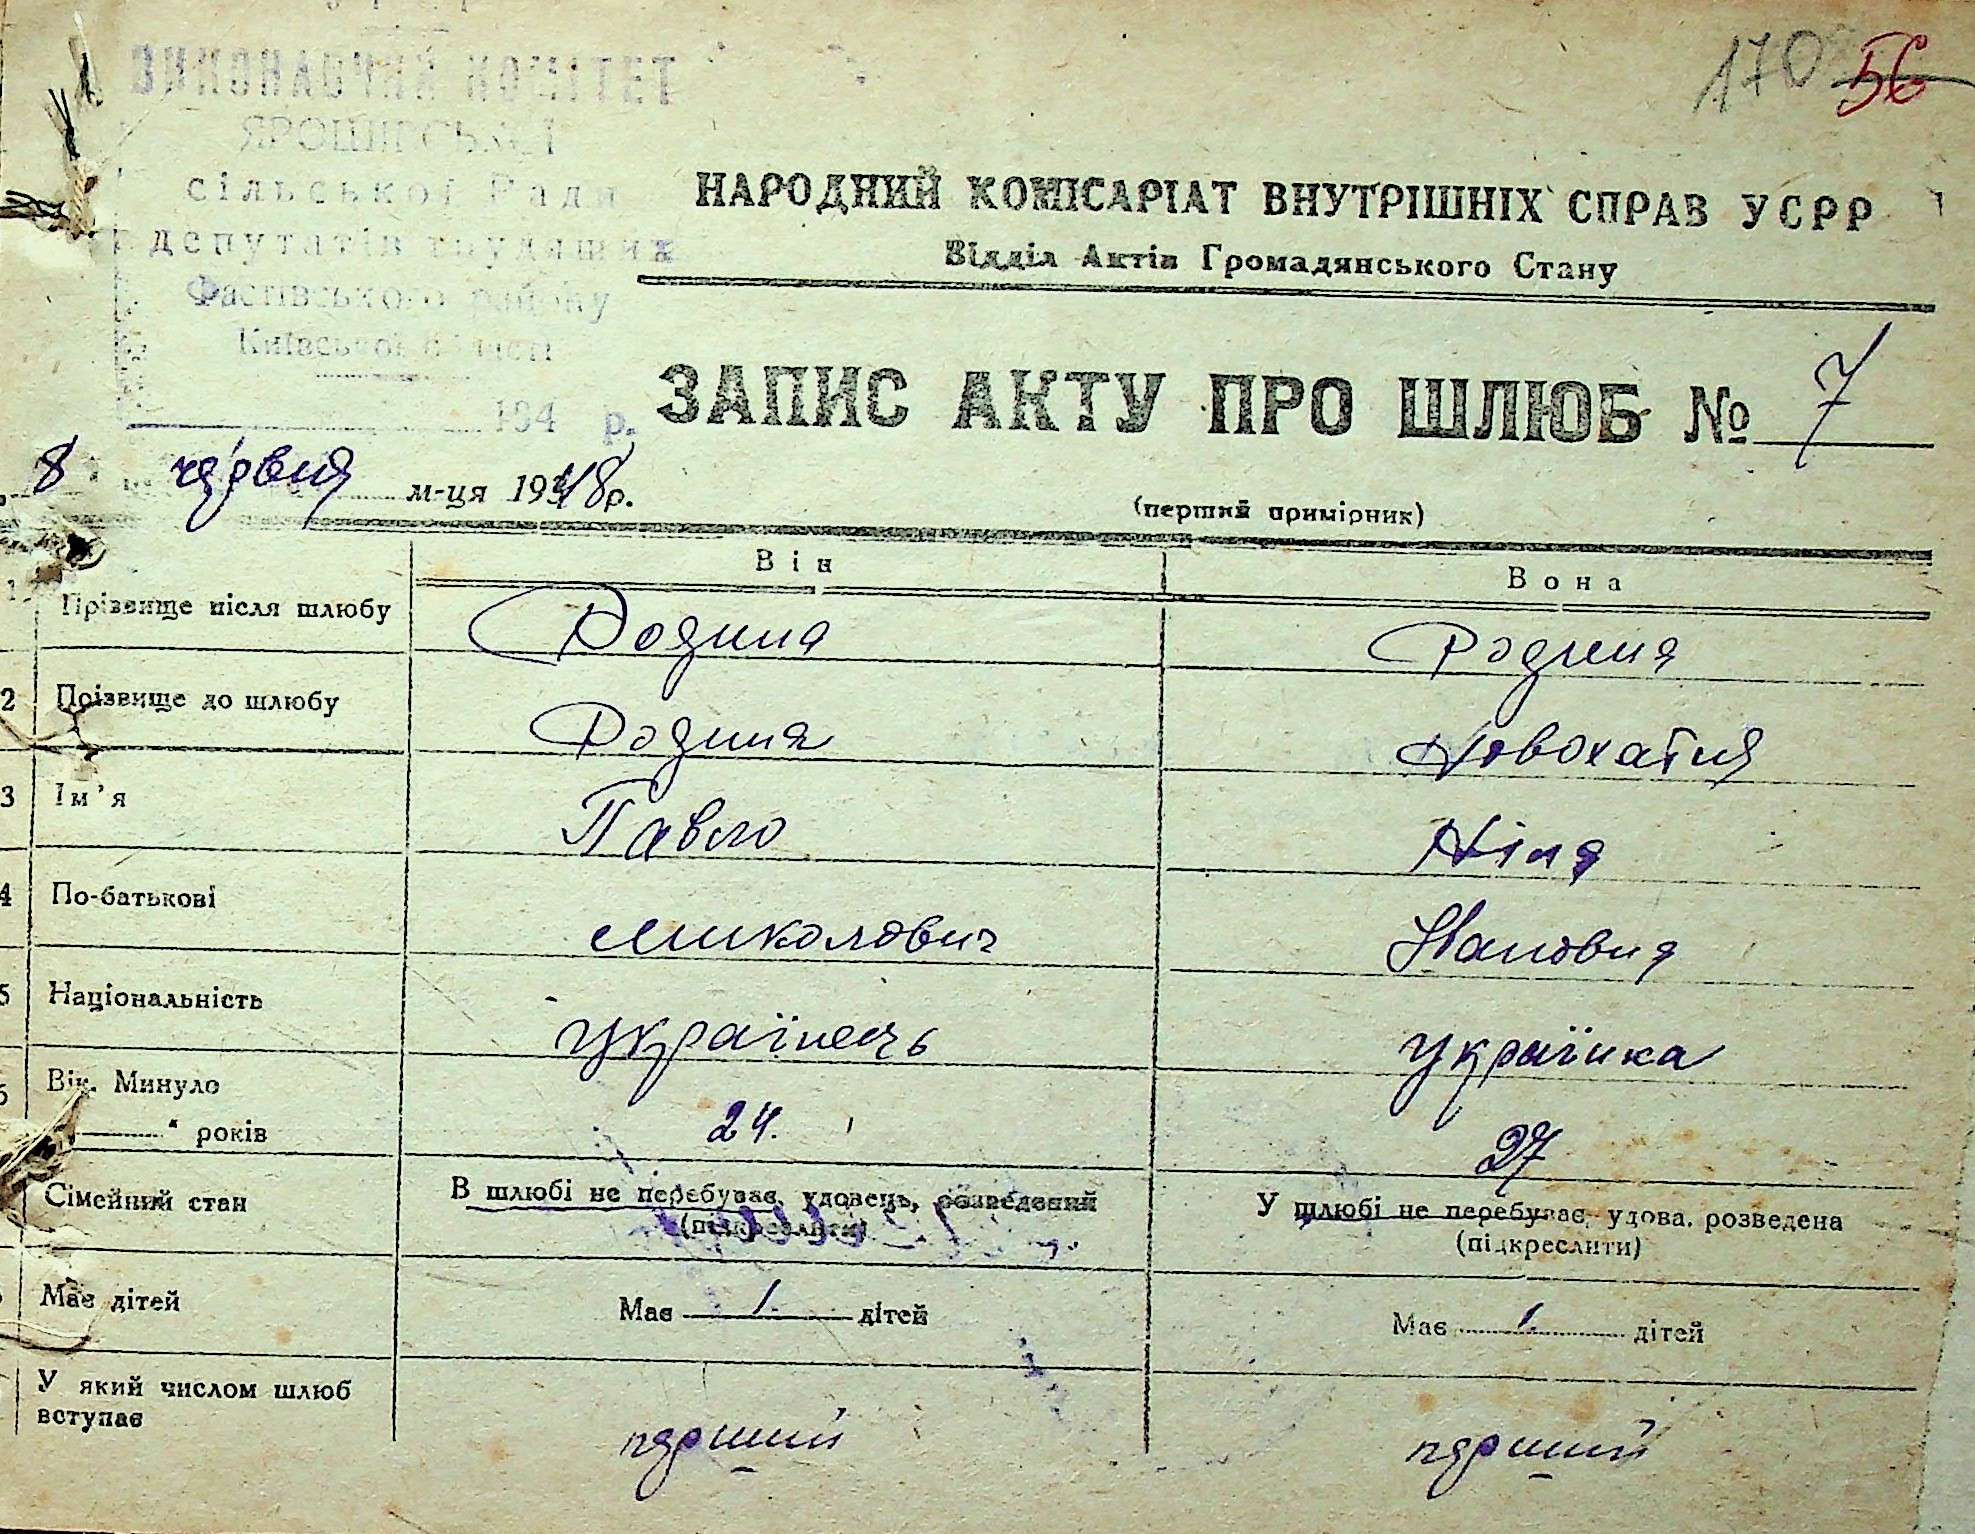 ВИКОНАВЧИЙ КОМІТЕТ
сільської Ради
депутатів трудящих
Фастівського району
Київської області
194 р.
170 56
НАРОДНИЙ КОМІСАРІАТ ВНУТРІШНІХ СПРАВ УСРР
Відділ Актів Громадянського Стану
ЗАПИС АКТУ ПРО ШЛЮБ № 7
8 червня м-ця 1948 р.
(перший примірник)
Він Вона
1 Прізвище після шлюбу Родина Родина
2 Прізвище до шлюбу Родина Новохатня
3 Ім'я Павло Ніна
4 По-батькові Миколович Івановна
5 Національність українець українка
6 Вік. Минуло
років 24. 27
Сімейний стан В шлюбі не перебуває, удовець, розведений У шлюбі не перебуває, удова, розведена
(підкреслити) (підкреслити)
Має дітей Має 1. дітей Має 1. дітей
У який числом шлюб
вступає перший перший